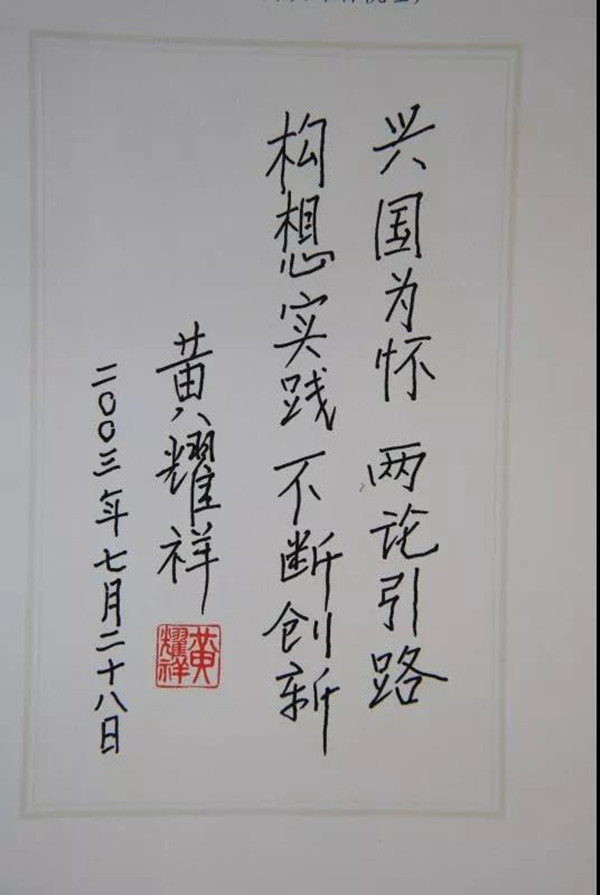 兴国为怀 两论引路
构想实践 不断创新
黄耀祥
二〇〇三年七月二十八日
黄耀祥